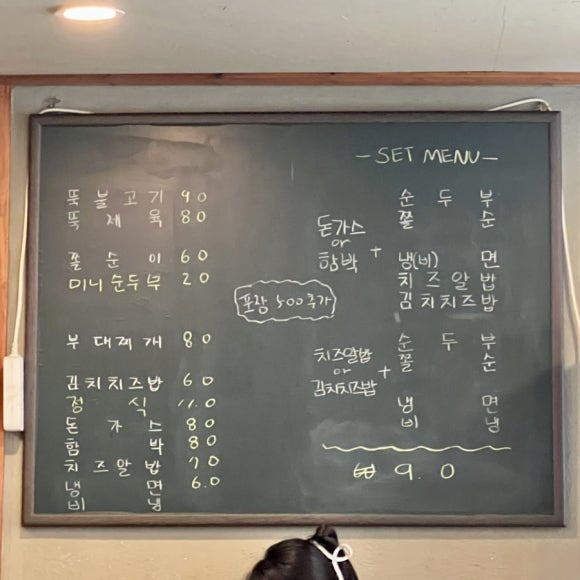 뚝불고기 9.0
뚝제육 8.0
쫄순이 6.0
미니순두부 2.0
부대찌개 8.0
김치치즈밥 6.0
정식 11.0
돈가스 8.0
함박 8.0
치즈알밥 7.0
냉면 6.0
비냉
포장 500추가
-SET MENU-
돈가스
or
함박
+
순두부
쫄순
냉(비)면
치즈알밥
김치치즈밥
치즈알밥
or
김치치즈밥
+
순두부
쫄순
냉면
비냉
₩ 9.0